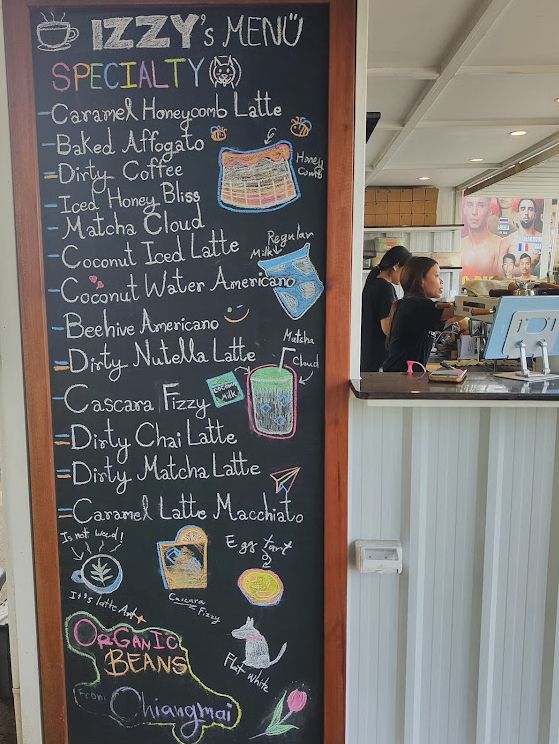 IZZY's MENÜ
SPECIALTY
Caramel Honeycomb Latte
Baked Affogato
Dirty Coffee
Honey Comb
Iced Honey Bliss
Matcha Cloud
Coconut Iced Latte
Regular
Milk
Coconut Water Americano
Beehive Americano
Matcha
Cloud
Dirty Nutella Latte
Coconut
Milk
Cascara Fizzy
Dirty Chai Latte
Dirty Matcha Latte
Caramel Latte Macchiato
Is not weed!
It's latte Art
Cascara
Fizzy
Egg tart
ORGANIC
BEANS
From
Chiangmai
Flat White